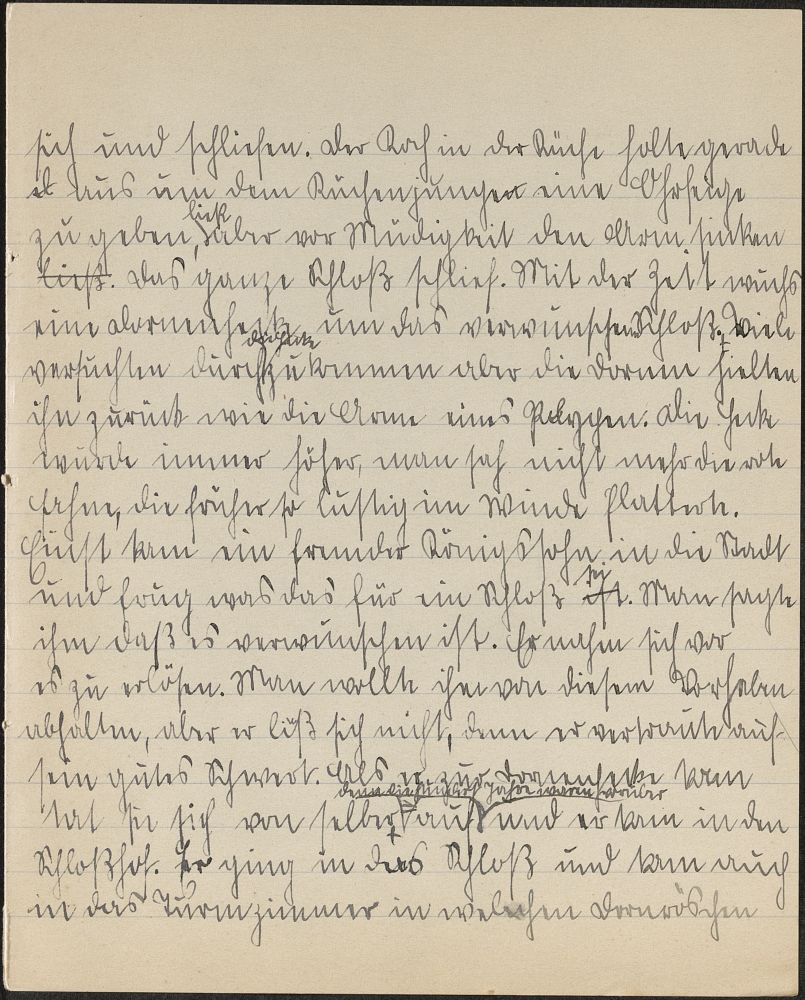 sich und schliefen. Der Koch in der Küche holte gerade
aus um dem Küchenjungen eine Ohrfeige
ließ
zu geben, aber vor Müdigkeit den Arm sinken
ließ. Das ganze Schloß schlief. Mit der Zeit wuchs
eine Dornenhecke um das verwunschene Schloß. Viele
versuchten durchzukommen aber die Dornen hielten
ihn zurück wie die Arme eines Polypen. Die Hecke
wurde immer höher, man sah nicht mehr die rote
Fahne, die früher so lustig im Winde flatterte.
Einst kam ein fremder Königssohn in die Stadt
sei
und frug was das für ein Schloß ist. Man sagte
ihm daß es verwunschen ist. Er nahm sich vor
es zu erlösen. Man wollte ihn von diesem Vorhaben
abhalten, aber er ließ sich nicht, denn er vertraute auf
sein gutes Schwert. Als er zur Dornenhecke kam
denn die hundert Jahre waren vorüber
tat sie sich von selber auf und er kam in den
Schloßhof. Er ging in das Schloß und kam auch
in das Turmzimmer in welchem Dornröschen